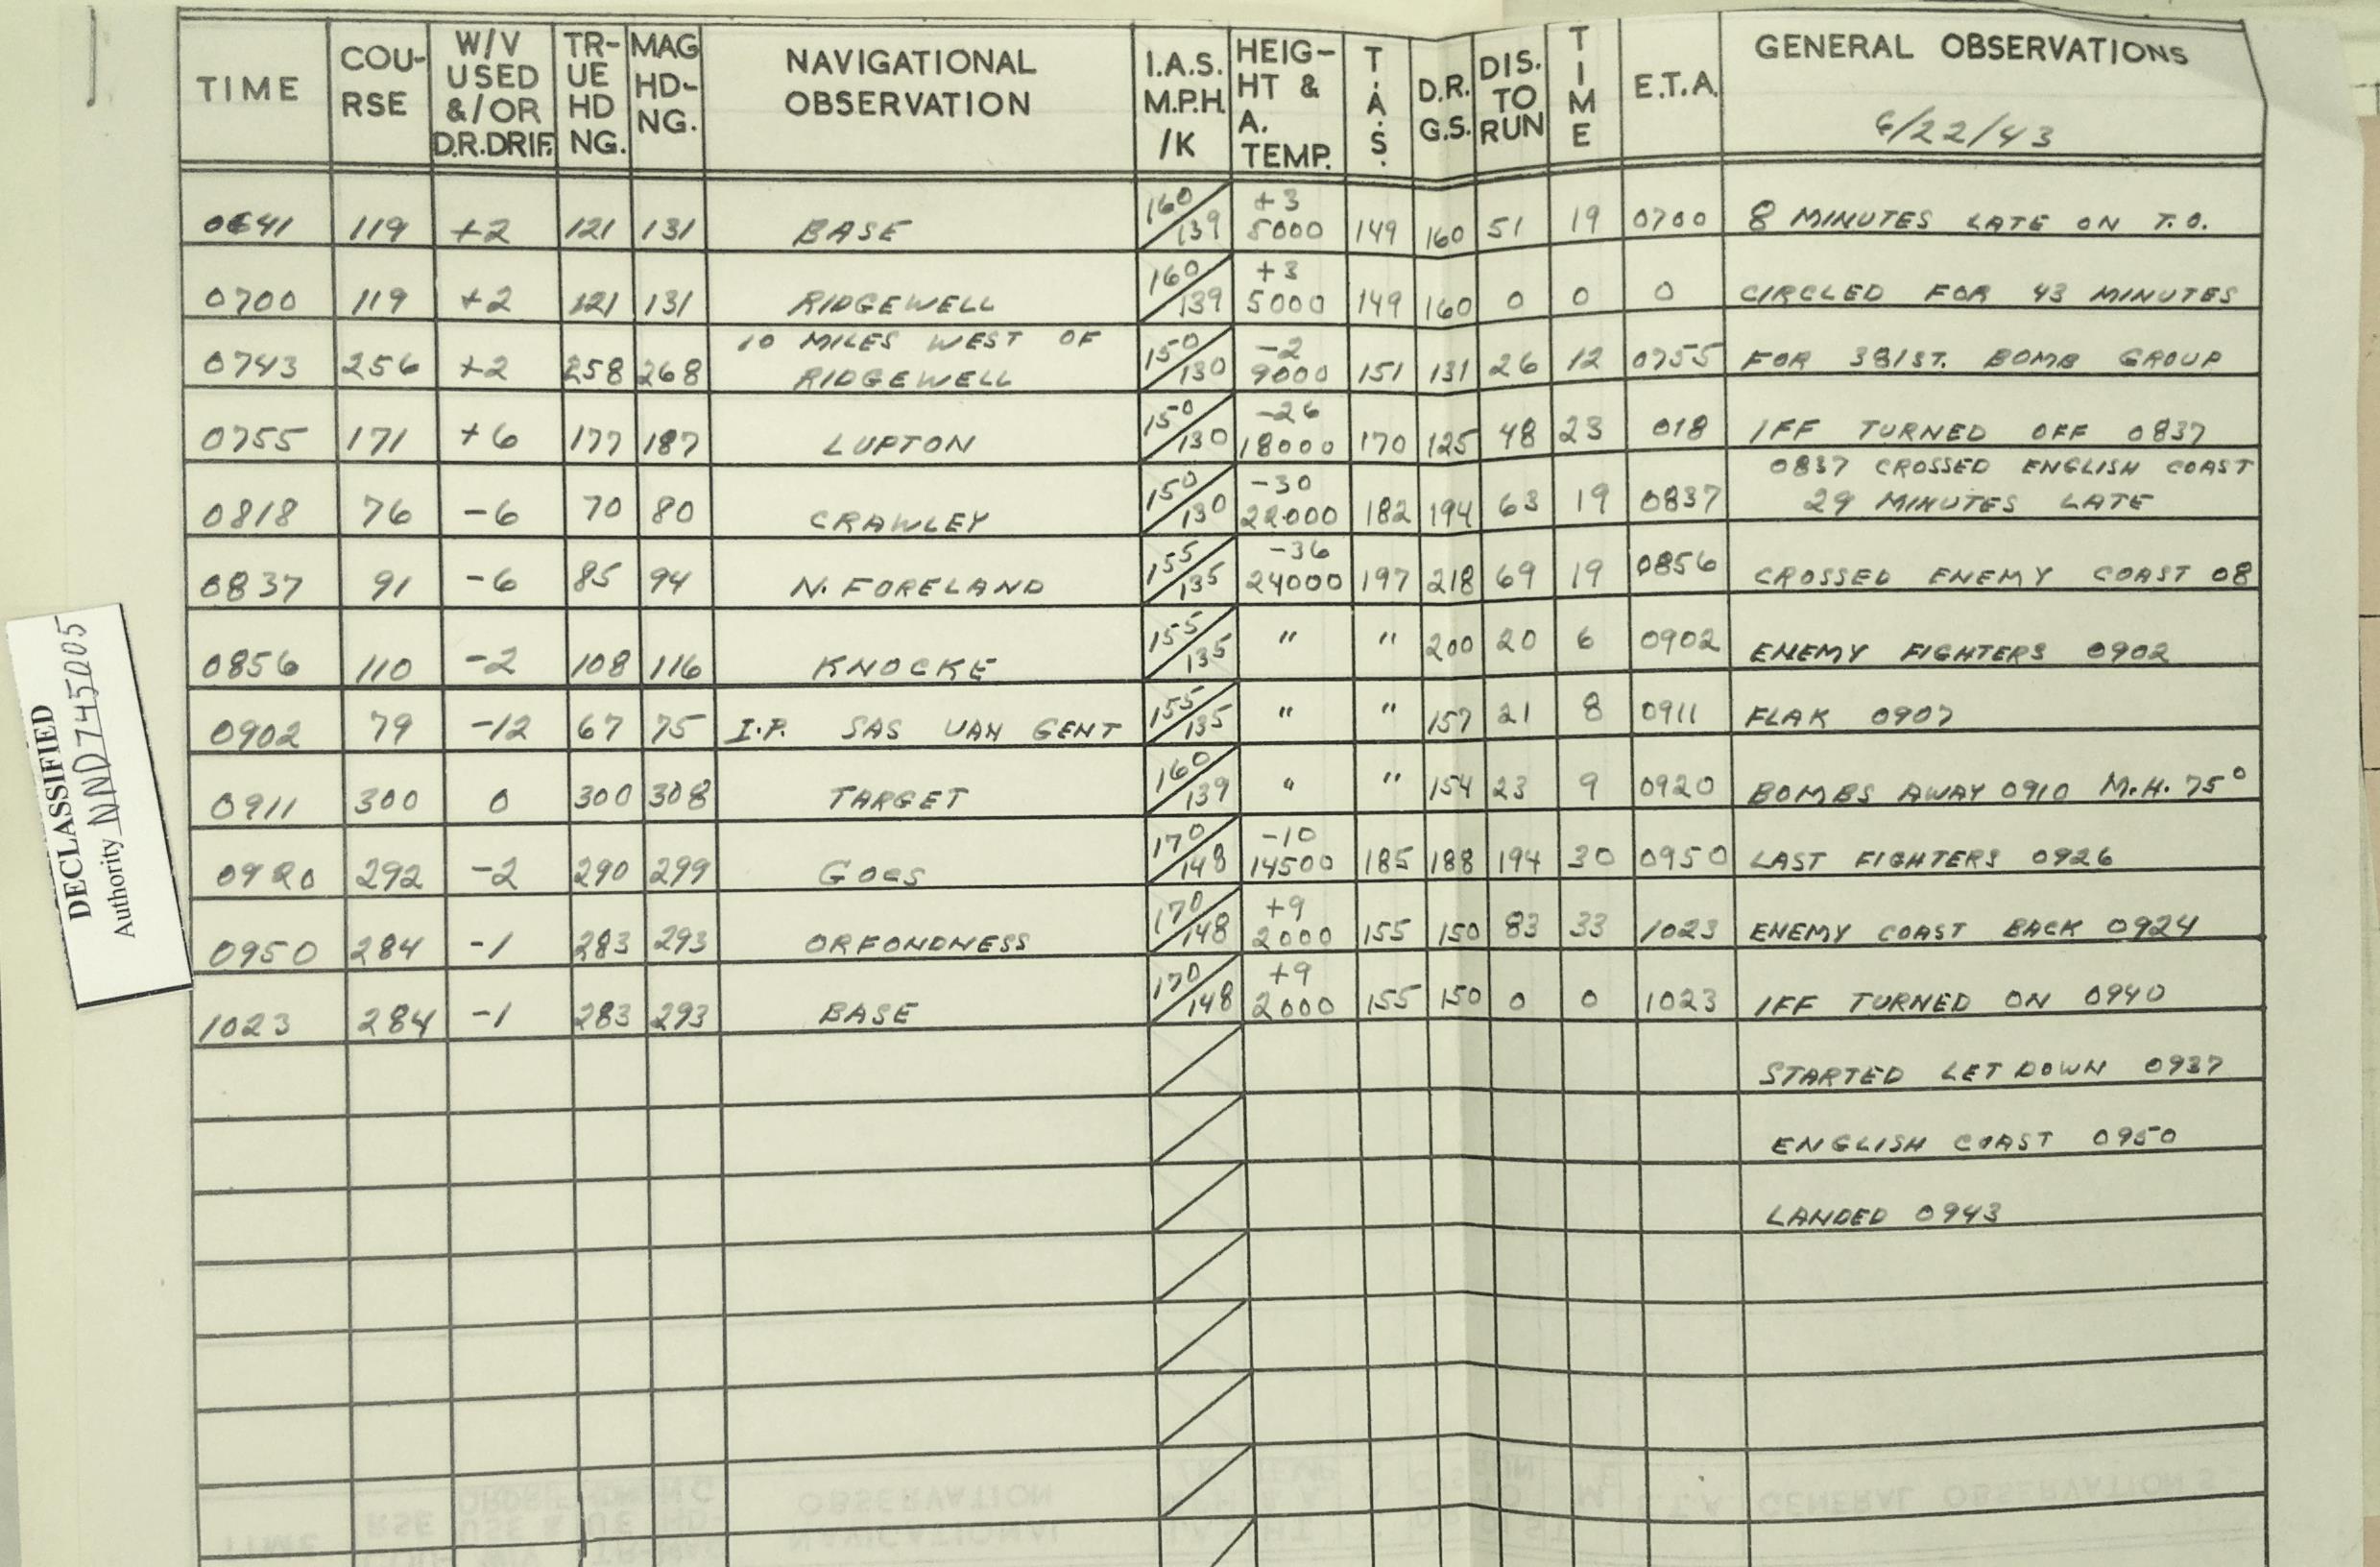 TIME COU-RSE W/V USED &/OR D.R.DRIF. TR-UE HD NG. MAG HD-NG. NAVIGATIONAL OBSERVATION I.A.S. M.P.H. /K HEIG-HT & A. TEMP. T.A.S. D.R. G.S. DIS. TO RUN TIME E.T.A. GENERAL OBSERVATIONS
6/22/43
0641 119 +2 121 131 BASE 160/139 +3 5000 149 160 51 19 0700 8 MINUTES LATE ON T.O.
0700 119 +2 121 131 RIDGEWELL 160/139 +3 5000 149 160 0 0 0 CIRCLED FOR 43 MINUTES
0743 256 +2 258 268 10 MILES WEST OF RIDGEWELL 150/130 -2 9000 151 131 26 12 0755 FOR 381ST. BOMB GROUP
0755 171 +6 177 187 LUPTON 150/130 -26 18000 170 125 48 23 018 IFF TURNED OFF 0837
0818 76 -6 70 80 CRAWLEY 150/130 -30 22000 182 194 63 19 0837 0837 CROSSED ENGLISH COAST 29 MINUTES LATE
0837 91 -6 85 94 N. FORELAND 155/135 -36 24000 197 218 69 19 0856 CROSSED ENEMY COAST 08
0856 110 -2 108 116 KNOCKE 155/135 " " 200 20 6 0902 ENEMY FIGHTERS 0902
0902 79 -12 67 75 I.P. SAS VAN GENT 155/135 " " 157 21 8 0911 FLAK 0907
0911 300 0 300 308 TARGET 160/139 " " 154 23 9 0920 BOMBS AWAY 0910 M.H. 75°
0920 292 -2 290 299 GOES 170/148 -10 14500 185 188 194 30 0950 LAST FIGHTERS 0926
0950 284 -1 283 293 ORFONDNESS 170/148 +9 2000 155 150 83 33 1023 ENEMY COAST BACK 0924
1023 284 -1 283 293 BASE 170/148 +9 2000 155 150 0 0 1023 IFF TURNED ON 0940
STARTED LET DOWN 0937
ENGLISH COAST 0950
LANDED 0943
DECLASSIFIED
Authority NND745005